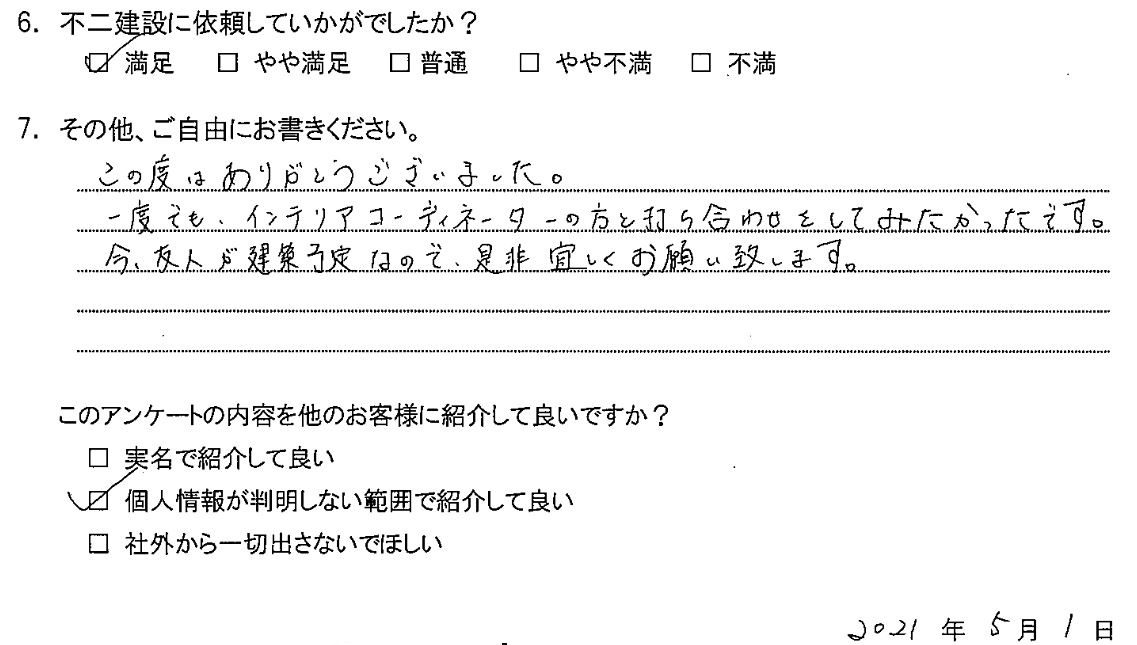 6. 不二建設に依頼していかがでしたか？
☑ 満足 □ やや満足 □ 普通 □ やや不満 □ 不満
7. その他、ご自由にお書きください。
この度はありがとうございました。
一度でも、インテリアコーディネーターの方と打ち合わせをしてみたかったです。
今、友人が建築予定なので、是非宜しくお願い致します。
このアンケートの内容を他のお客様に紹介して良いですか？
□ 実名で紹介して良い
☑ 個人情報が判明しない範囲で紹介して良い
□ 社外から一切出さないでほしい
2021 年 5 月 1 日